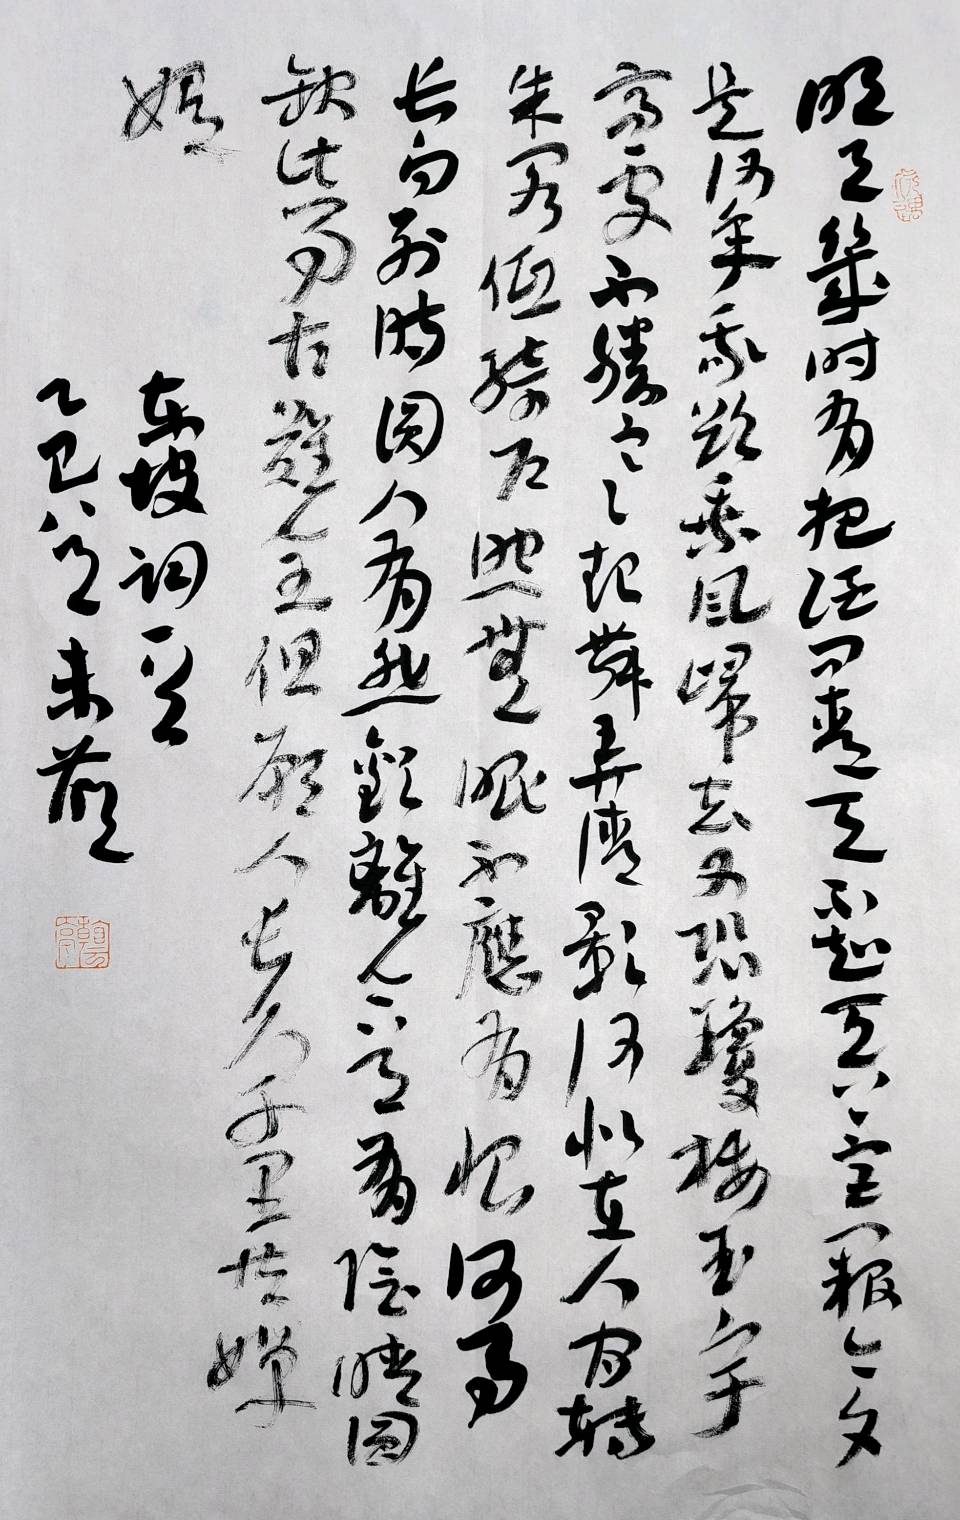 明月幾时有把酒问青天不知天上宫阙今夕
是何年我欲乘風歸去又恐瓊楼玉宇
高處不勝寒起舞弄清影何似在人间转
朱阁低绮户照無眠不應有恨何事
长向别時圆人有悲歡離合月有陰晴圆
缺此事古難全但願人長久千里共婵
娟
东坡词一首
乙巳八月